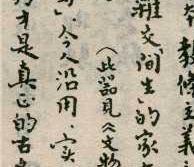 教條主義
雜交、間生”的家
（此器見《文物
”今人沿用，实
才是真正的古